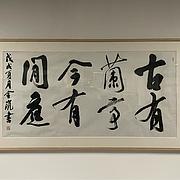 古有
蘭亭
今有
閒庭
戊戌夏月
書